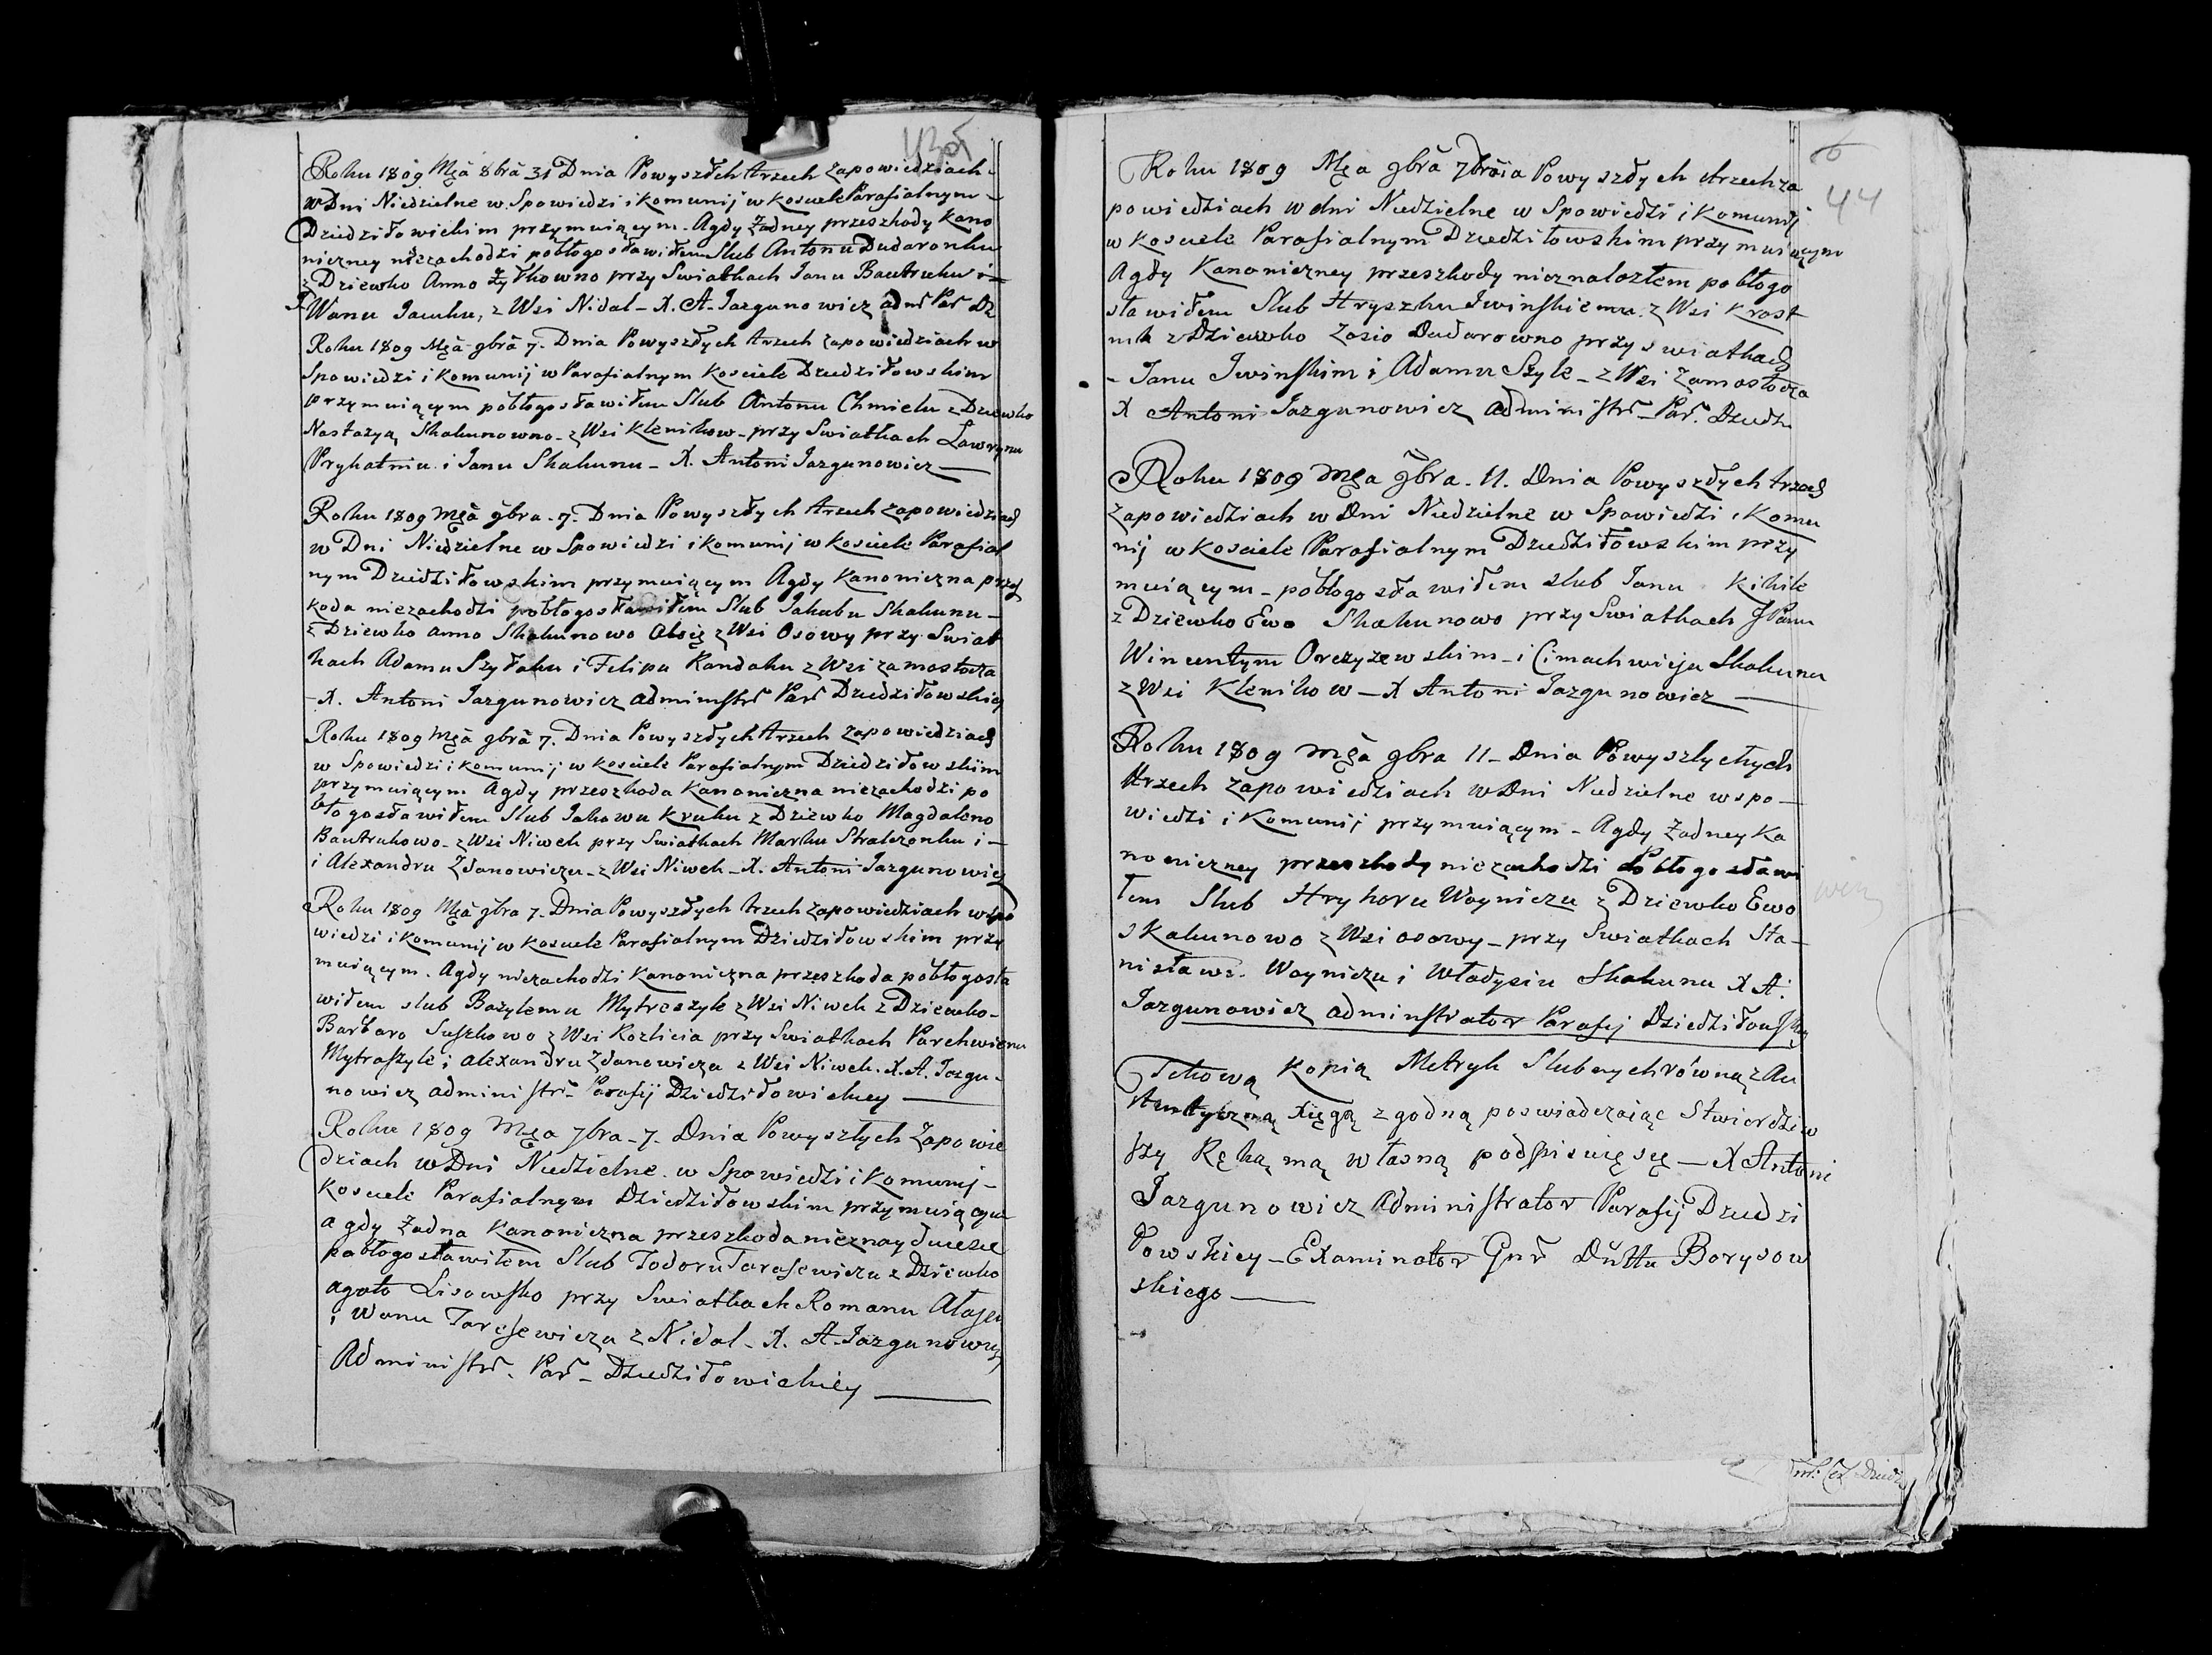 43об
Roku 1809 Mca 8bra 31 Dnia Powyszłch trzech zapowiedziach
w Dni Niedzielne w Spowiedzi i Komunij w Kosciele Parafialnym
Dziedziłowickim przymuiącym. Agdy żadney przeszkody Kano
niczney niezachodzi pobłogosławiłem Slub Antonu Dudaronku
z Dziewko Anno przy Swiatkach Janu Bautruku i
Wanu Jacuku, z Wsi Nidal – X. A. Jazgunowicz adm Par Dz
Roku 1809 Mca 9bra 7. Dnia Powyszłych trzech zapowiedziach w
Spowiedzi i Komunij w Parafialnym Kosciele Dziedziłowskim
przymuiącym pobłogosławiłem Slub Antonu Chmielu z Dziewko
Nastazyą Skakunowno – z Wsi Klenikow – przy Swiatkach Lawrynu
Prykatniu i Janu Skakunu – X. Antoni Jazgunowicz
Roku 1809 Mca 9bra. 7. Dnia Powyszłych trzech zapowiedziach
w Dni Niedzielne w Spowiedzi i Komunij w Kosciele Parafial
nym Dziedziłowskim przymuiącym Agdy Kanoniczna przes
koda niezachodzi pobłogosławiłem Slub Jakubu Skakunu –
z Dziewko Anno Skakunowo z Wsi Osowy przy Swiat
kach Adamu Szyłaku i Filipu Kandaku z Wsi Zamostocza
– X. Antoni Jazgunowicz administr Par Dziedziłowskiey
Roku 1809 Mca 9bra 7. Dnia Powyszłych trzech zapowiedziach
w Spowiedzi i Komunij w Kosciele Parafialnym Dziedziłowskim
przymuiącym Agdy przeszkoda Kanoniczna niezachodzi po
błogosławiłem Slub Jakowu Kruku z Dziewko Magdaleno
Bautrukowo – z Wsi Niwek przy Swiatkach Marku Stralczonku i –
i Alexandru Zdanowiczu – z Wsi Niwek – X. Antoni Jazgunowicz
Roku 1809 Mca 9bra 7. Dnia Powyszłych trzech zapowiedziach w Spo
wiedzi i Komunij w Kosciele Parafialnym Dziedziłowskim przy
muiącym. Agdy niezachodzi Kanoniczna przeszkoda pobłogosła
wiłem slub Bazylemu Mytraszyle z Wsi Niwek z Dziewko –
Barbaro Suszkowo z Wsi Kozlicia przy Swiatkach Parchwienu
Mytraszyle i alexandru Zdanowicza z Wsi Niwek. X. A. Jazgu –
nowicz administr – Parafij Dziedziłowickiey
Roku 1809 Mca 9bra – 7. Dnia Powyszłych Zapowie
dziach w Dni Niedzielne w Spowiedzi i Komunij –
Kosciele Parafialnym Dziedziłowskim przymuiącym
agdy żadna Kanoniczna przeszkoda nieznayduiesie
pobłogosławiłem Slub Todoru Tarasewiczu z Dziewko
agato Lisowsko przy Swiatkach Romanu
i Wanu Tarasewicza z Nidal – X. A. Jazgunowicz
Administr. Par – Dziedziłowickiey
44
Roku 1809 Mca 9bra Powyszłych trzech za
powiedziach w dni Niedzielne w Spowiedzi i Komunij
w Kosciele Parafialnym Dziedziłowskim przymuiącym
Agdy Kanoniczney przeszkody nieznalozłem pobłogo
sławiłem Slub Hryszku Iwinskiemu z Wsi Krast
z Dziewko Zosio Dudarowno przy swiatkach
– Janu Iwinskim i Adamu Szyle – z Wsi Zamostocza
X Antoni Jazgunowicz Administr – Par. Dziedz
Roku 1809 Mca 9bra. 11. Dnia Powyszłych trzech
zapowiedziach w Dni Niedzielne w Spowiedzi i Komu
nij w Kosciele Parafialnym Dziedziłowskim przy
muiącym – pobłogosławiłem slub Janu Kikile
z Dziewko Ewo Skakunowo przy Swiatkach JPanu
Wincentym Orczyzewskim – i Skakunu
z Wsi Klenikow – X Antoni Jazgunowicz
Roku 1809 Mca 9bra 11 – Dnia Powyszłychych
trzech zapowiedziach w Dni Niedzielne w spo –
wiedzi i Komunij przymuiącym – Agdy żadney Ka
noniczney przeszkody niezachodzi Pobłogosławi
łem Slub Hryhoru Woyniczu z Dziewko Ewo
Skakunowo z Wsi osowy – przy Swiatkach Sta –
nisławu Woyniczu i Władysiu Skakunu X A.
Jazgunowicz administrator Parafij Dziedziłowskiey
Tekową Kopią Metryk Slubnych równą z Au
tentyczną Xięgą zgodną poswiadczaiąc Stwierdziw
szy Ręką mą własną podpisuię się – X Antoni
Jazgunowicz Administrator Parafij Dziedzi
łowskiey – Examinator Dttu Borysow
skiego